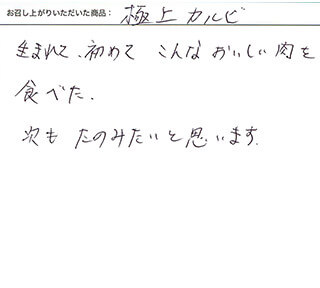 お召し上がりいただいた商品： 極上カルビ
生まれて、初めて こんなおいしい肉を
食べた.
次も たのみたいと思います.